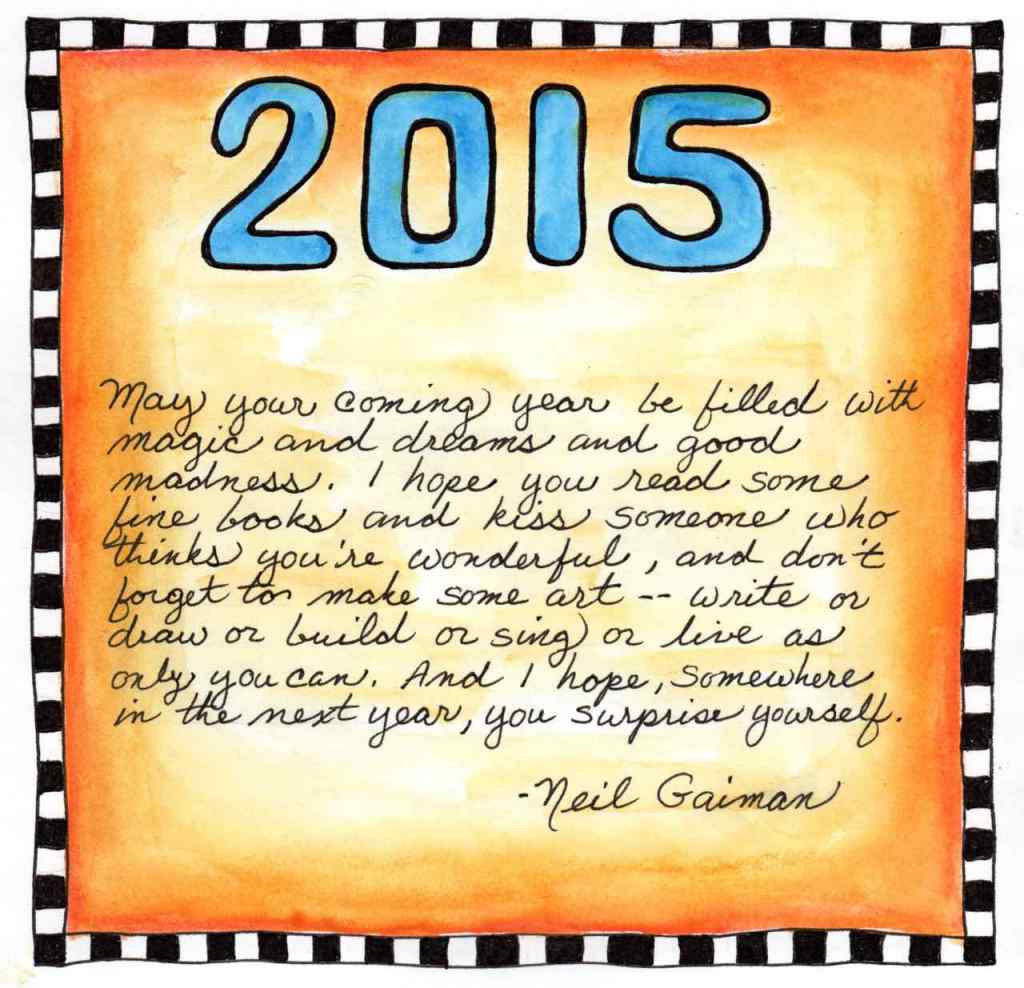 2015
May your coming year be filled with
magic and dreams and good
madness. I hope you read some
fine books and kiss someone who
thinks you're wonderful, and don't
forget to make some art -- write or
draw or build or sing or live as
only you can. And I hope, somewhere
in the next year, you surprise yourself.
-Neil Gaiman